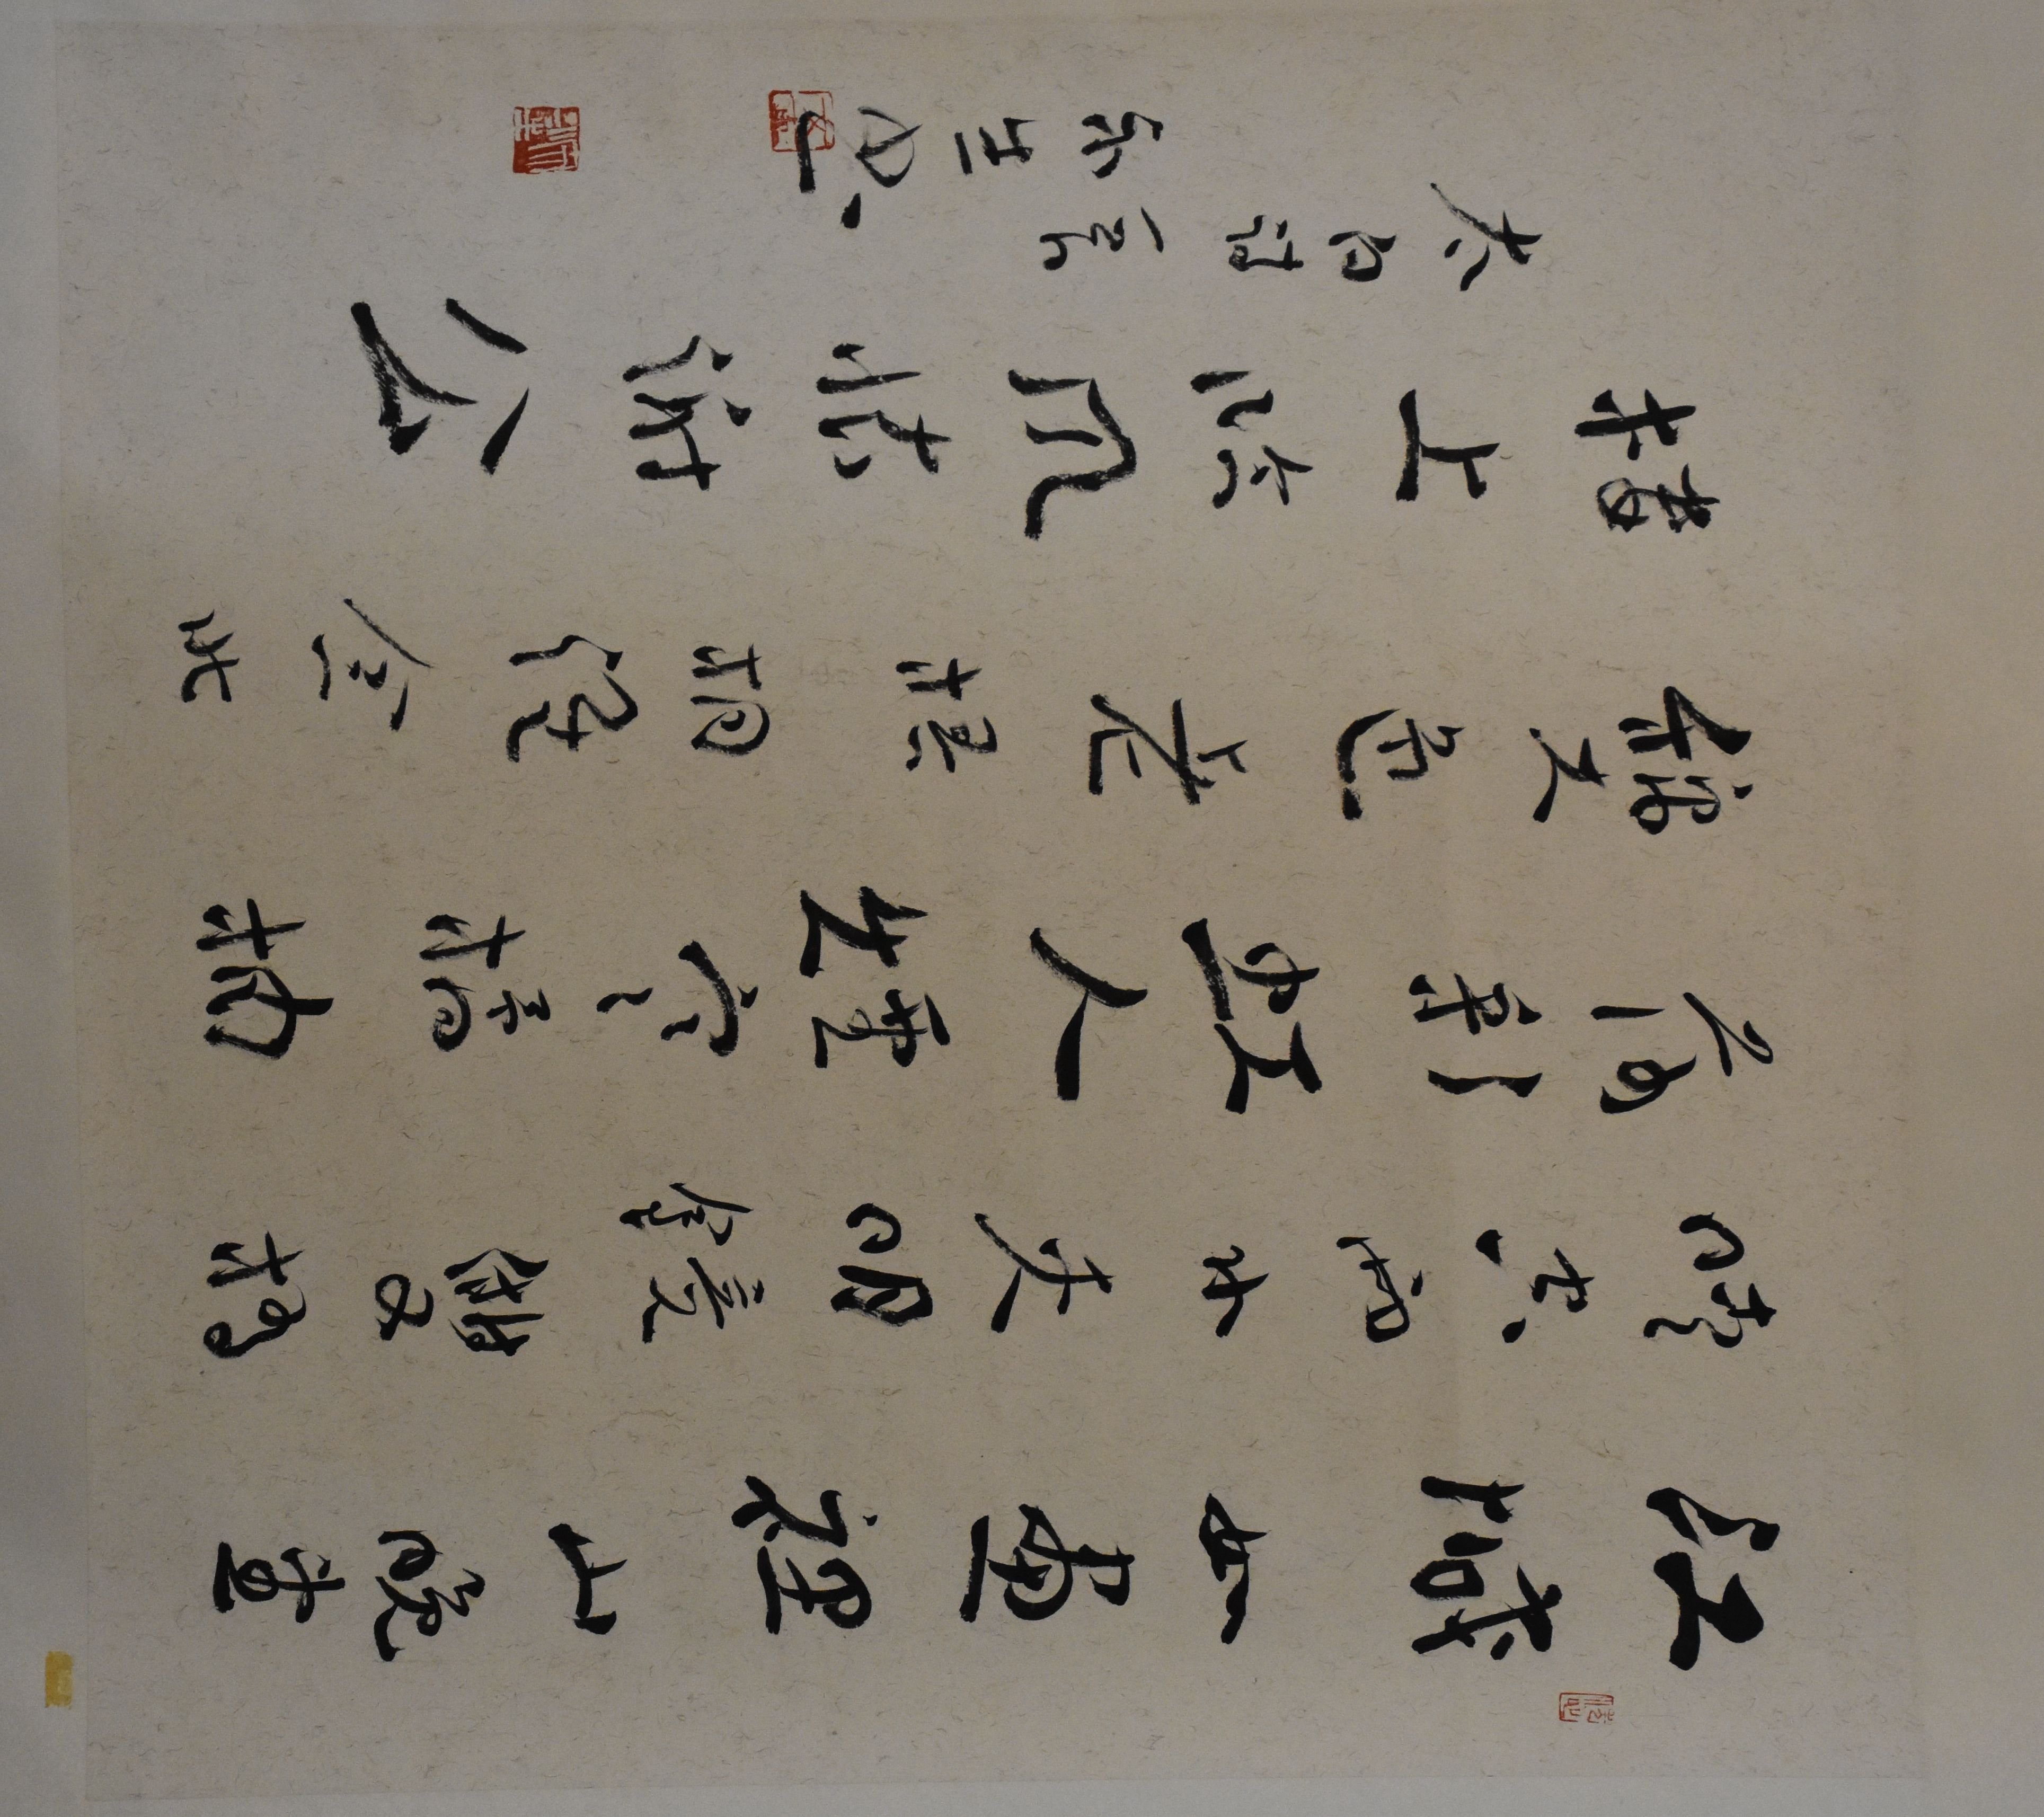 江城如畫裡山晚望
晴空兩水夾明鏡雙橋
落彩虹人煙寒橘柚
秋色老梧桐誰念北
樓上臨風懷謝公
太白詩一首